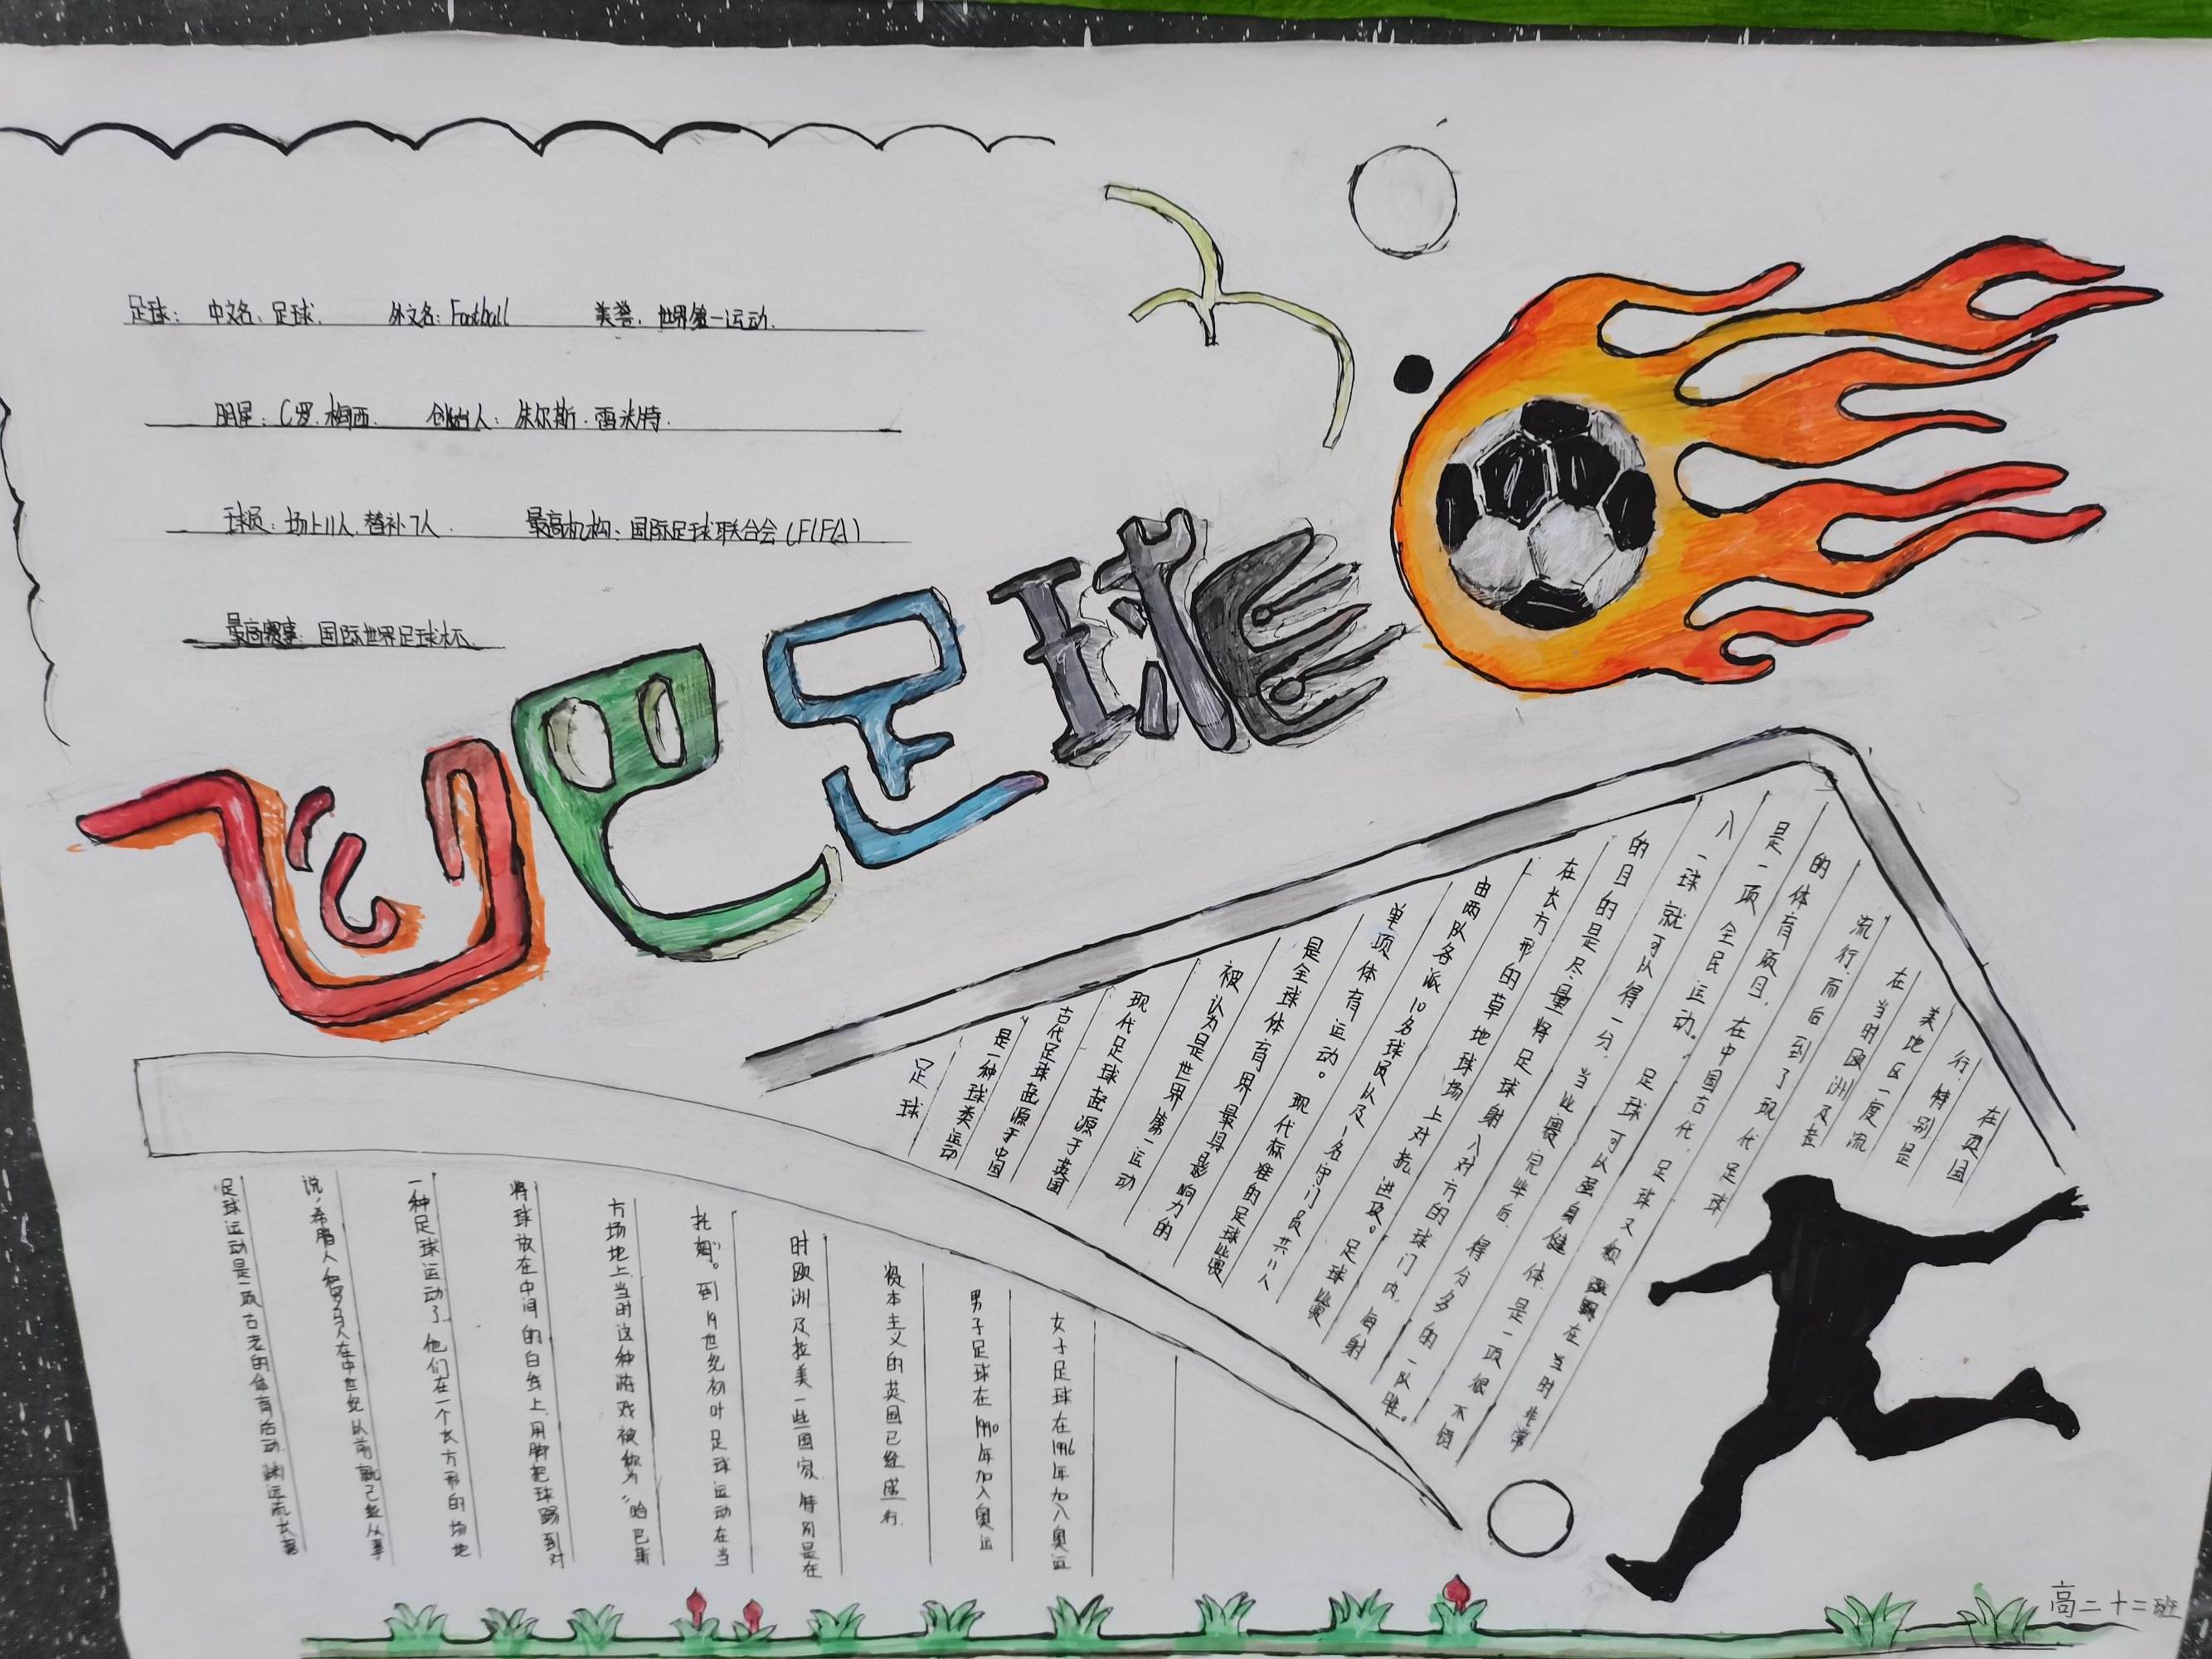 足球: 中文名、足球. 外文名: Football 美誉、世界第一运动.
明星: C罗.梅西. 创始人: 朱尔斯·雷米特.
球员: 场上11人.替补7人. 最高机构: 国际足球联合会(FIFA)
最高赛事: 国际世界足球杯.
飞吧足球
足球
是一种球类运动
古代足球起源于中国
现代足球起源于英国
被认为是世界第一运动
是全球体育界最具影响力的
单项体育运动。现代标准的足球比赛
由两队各派10名球员以及1名守门员共11人
在长方形的草地球场上对抗、进攻。足球比赛
的目的是尽量将足球射入对方的球门内,每射
入一球就可以得一分,当比赛完毕后,得分多的一队胜。
是一项全民运动。足球可以强身健体,是一项很不错
的体育项目,在中国古代,足球又被 在当时非常
流行.而后到了现代足球
在当时欧洲及老
美地区一度流
行.特别是
在英国
足球运动是一项古老的体育活动,源远流长
说,希腊人和罗马人在中世纪以前就已经从事
一种足球运动了.他们在一个长方形的场地
将球放在中间的白线上.用脚把球踢到对
方场地上.当时这种游戏被称为“哈巴斯
托姆”。到19世纪初叶足球运动在当
时欧洲及拉美一些国家.特别是在
资本主义的英国已经盛行.
男子足球在1990年加入奥运
女子足球在1996年加入奥运
高二十二班